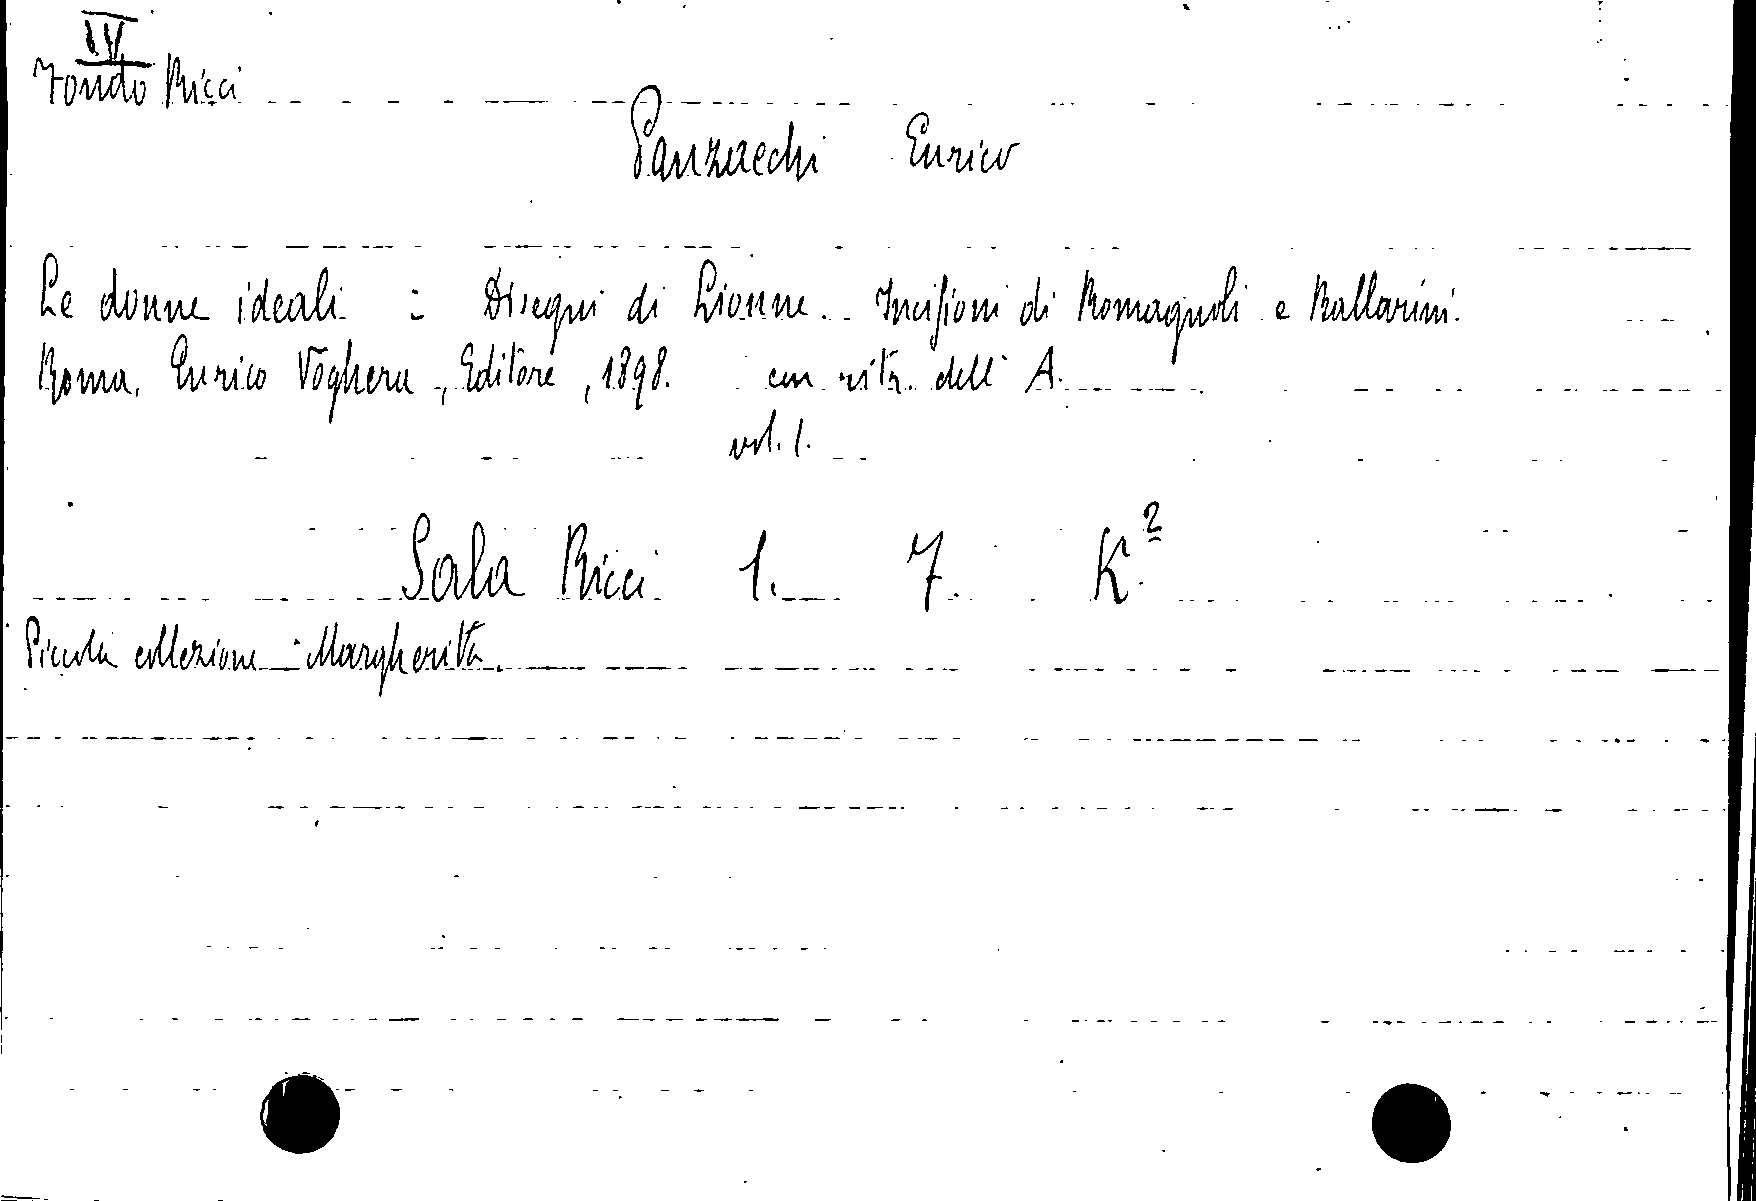 IV
Fondo Ricci
Panzacchi Enrico
Le donne ideali : Disegni di Lionne. Incisioni di Romagnoli e Ballarini.
Roma, Enrico Voghera, Editore, 1898. con ritr. dell' A.
vol. 1.
Sala Ricci 1. 7. K.2
Piccola collezione : Margherita.